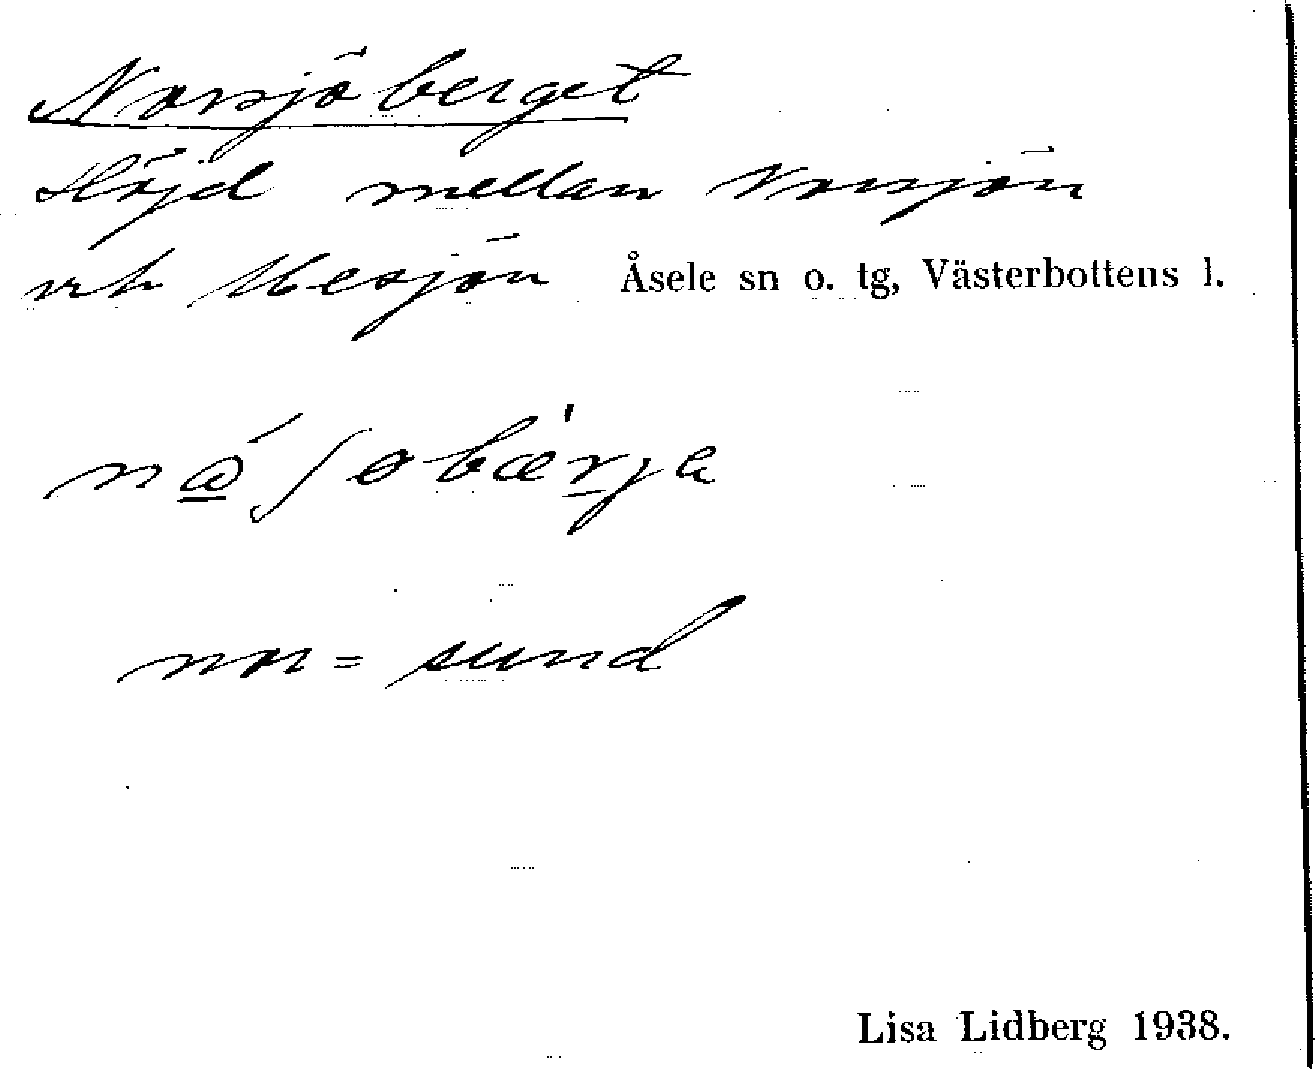 Norsjöberget
Höjd mellan Norsjön
och Mesjön Åsele sn o. tg, Västerbottens l.
nor = sund
Lisa Lidberg 1938.